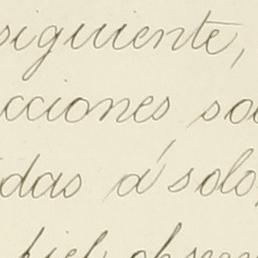 siguiente,
cciones so
das á solo
fiel obser